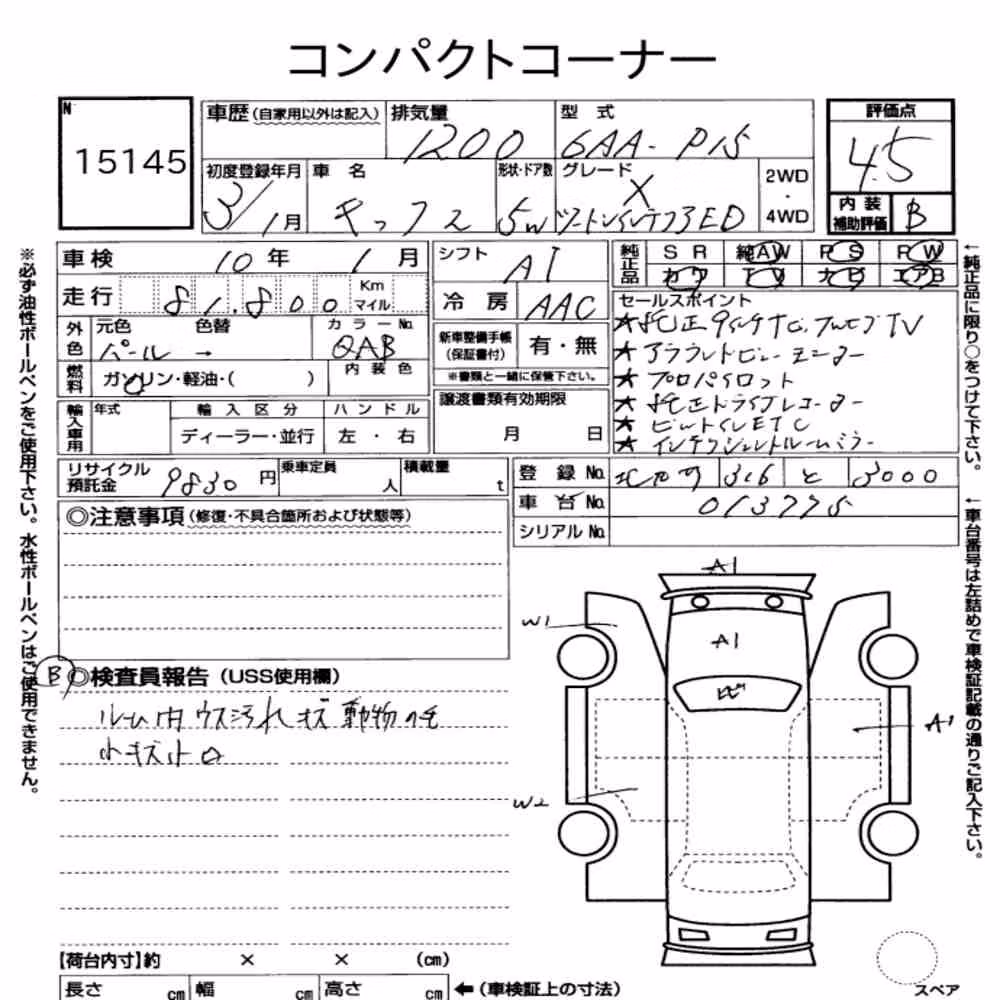 コンパクトコーナー
N
15145
車歴 (自家用以外は記入)
排気量
1200
型 式
6AA- P15
評価点
4.5
初度登録年月
3/1月
車 名
キックス
形状・ドア数
5W
グレード
X
ツートンインテリアED
2WD
・
4WD
内 装
補助評価
B
車検
10 年 1 月
シフト
AT
純正品
S R 純AW P S P W
カワ T V ナビ エアB
走行
81,800
Km
マイル
冷 房
AAC
セールスポイント
外色
元色 色替
パール →
カラーNo.
QAB
新車整備手帳
(保証書付)
有・無
※書類と一緒に保管下さい。
燃料
ガソリン・軽油・( )
内 装 色
★純正9インチナビ.フルセグTV
★アラウンドビューモニター
★プロパイロット
★純正ドライブレコーダー
★ビルトインETC
★インテリジェントルームミラー
輸入車用
年式
輸 入 区 分
ハ ン ド ル
ディーラー・並行
左 ・ 右
譲渡書類有効期限
月 日
リサイクル
預託金
9830 円
乗車定員
人
積載量
t
登 録 No.
316
と
3000
車 台 No.
013775
シリアル No.
◎注意事項 (修復・不具合箇所および状態等)
B
◎検査員報告 (USS使用欄)
ルーム内ウス汚れ キズ 動物の毛
小キズ小凹
A1
W1
A1
A1
W2
【荷台内寸】約 × × (cm)
長さ cm
幅 cm
高さ cm
←(車検証上の寸法)
スペア
※必ず油性ボールペンをご使用下さい。水性ボールペンはご使用できません。
←純正品に限り○をつけて下さい。
←車台番号は左詰めで車検証記載の通りご記入下さい。